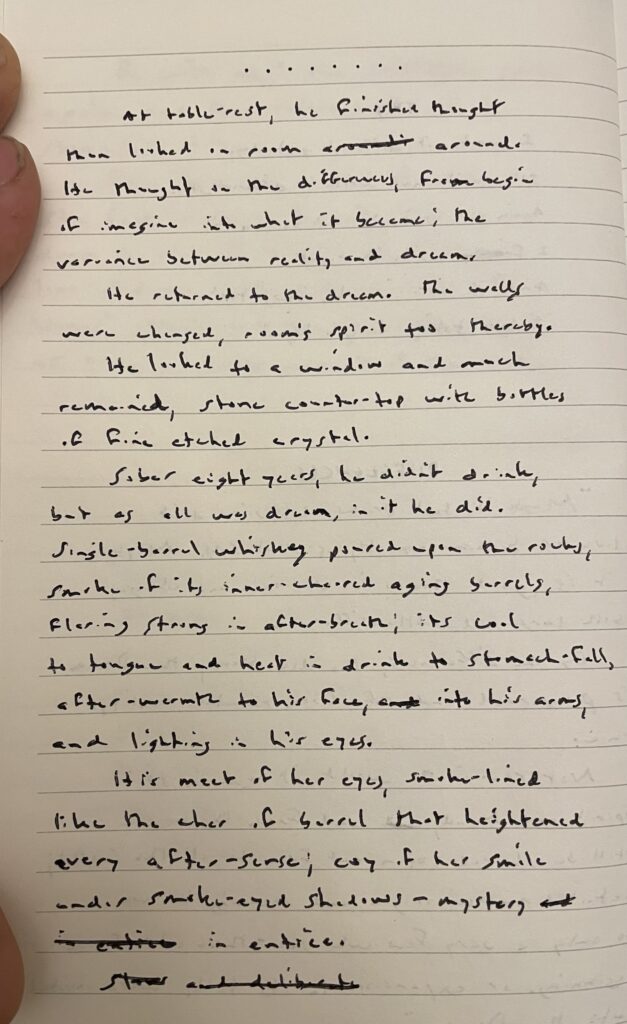 . . . . . . . .
At table-rest, he finished thought
then looked on room around.
He thought on the differences, from begin
of imagine into what it became; the
variance between reality and dream.
He returned to the dream. The walls
were changed, room's spirit too thereby.
He looked to a window and much
remained, stone counter-top with bottles
of fine etched crystal.
Sober eight years, he didn't drink,
but as all was dream, in it he did.
Single-barrel whiskey poured upon the rocks,
smoke of its inner-charred aging barrels,
flaring strong in after-breath; its cool
to tongue and heat in drink to stomach-fall,
after-warmth to his face, into his arms,
and lighting in his eyes.
It is meet of her eyes, smoke-lined
like the char of barrel that heightened
every after-sense; coy of her smile
under smoke-eyed shadows - mystery
in entice.